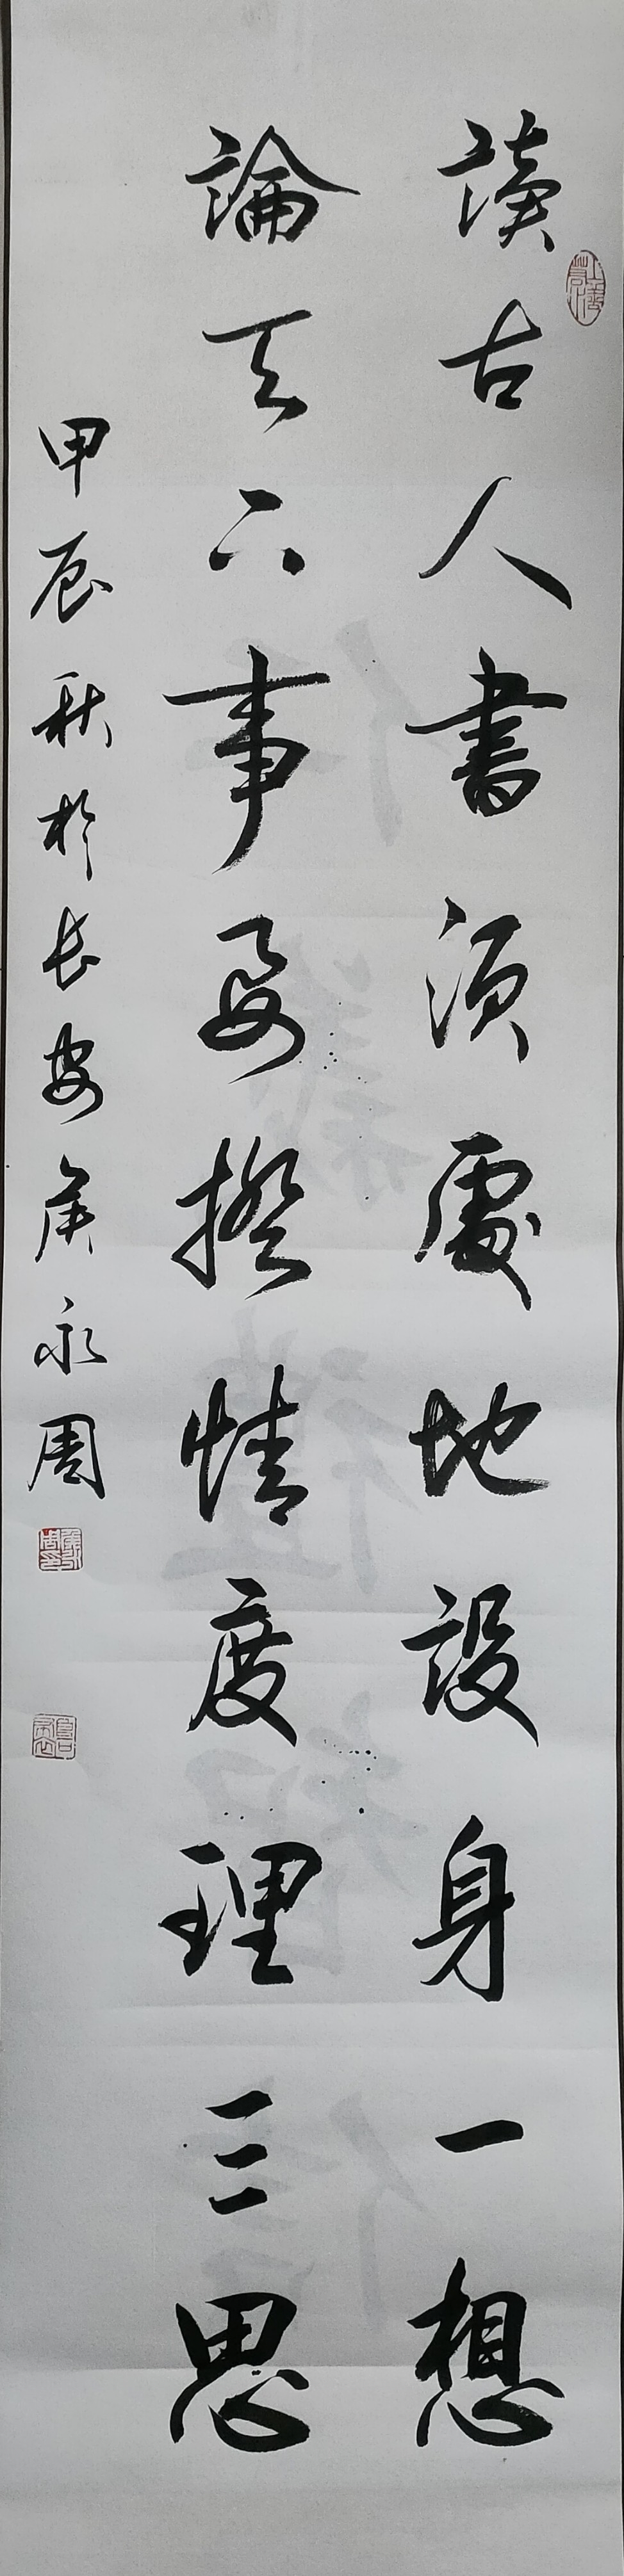 讀古人書須處地設身一想
論天下事要揆情度理三思
甲辰秋於長安侯永周